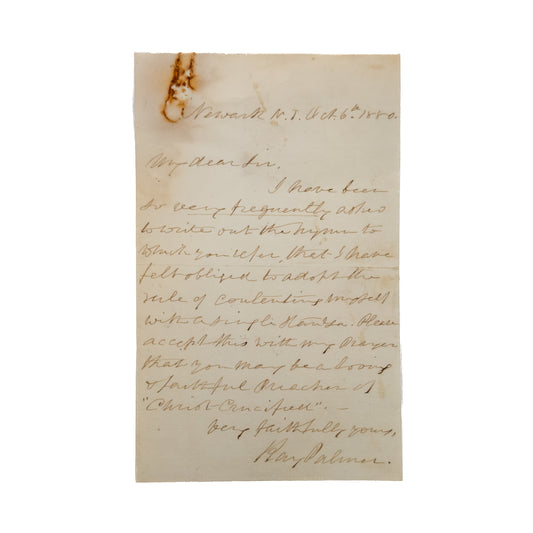 Newark N.J. Oct. 6th. 1880.
My dear Sir.
I have been
so very frequently asked
to write out the hymn to
which you refer, that I have
felt obliged to adopt the
rule of contenting myself
with a single stanza. Please
accept this with my prayer
that you may be a loving
& faithful Preacher of
"Christ Crucified". —
Very faithfully yours,
Ray Palmer.